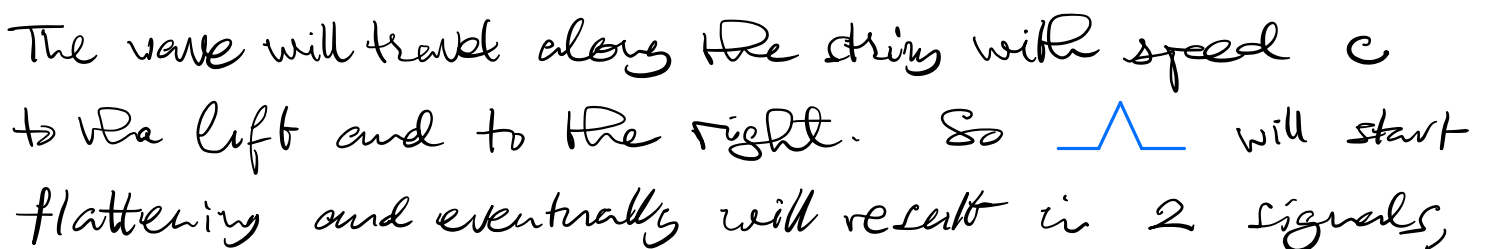 The wave will travel along the string with speed c
to the left and to the right. So will start
flattening and eventually will result in 2 signals,